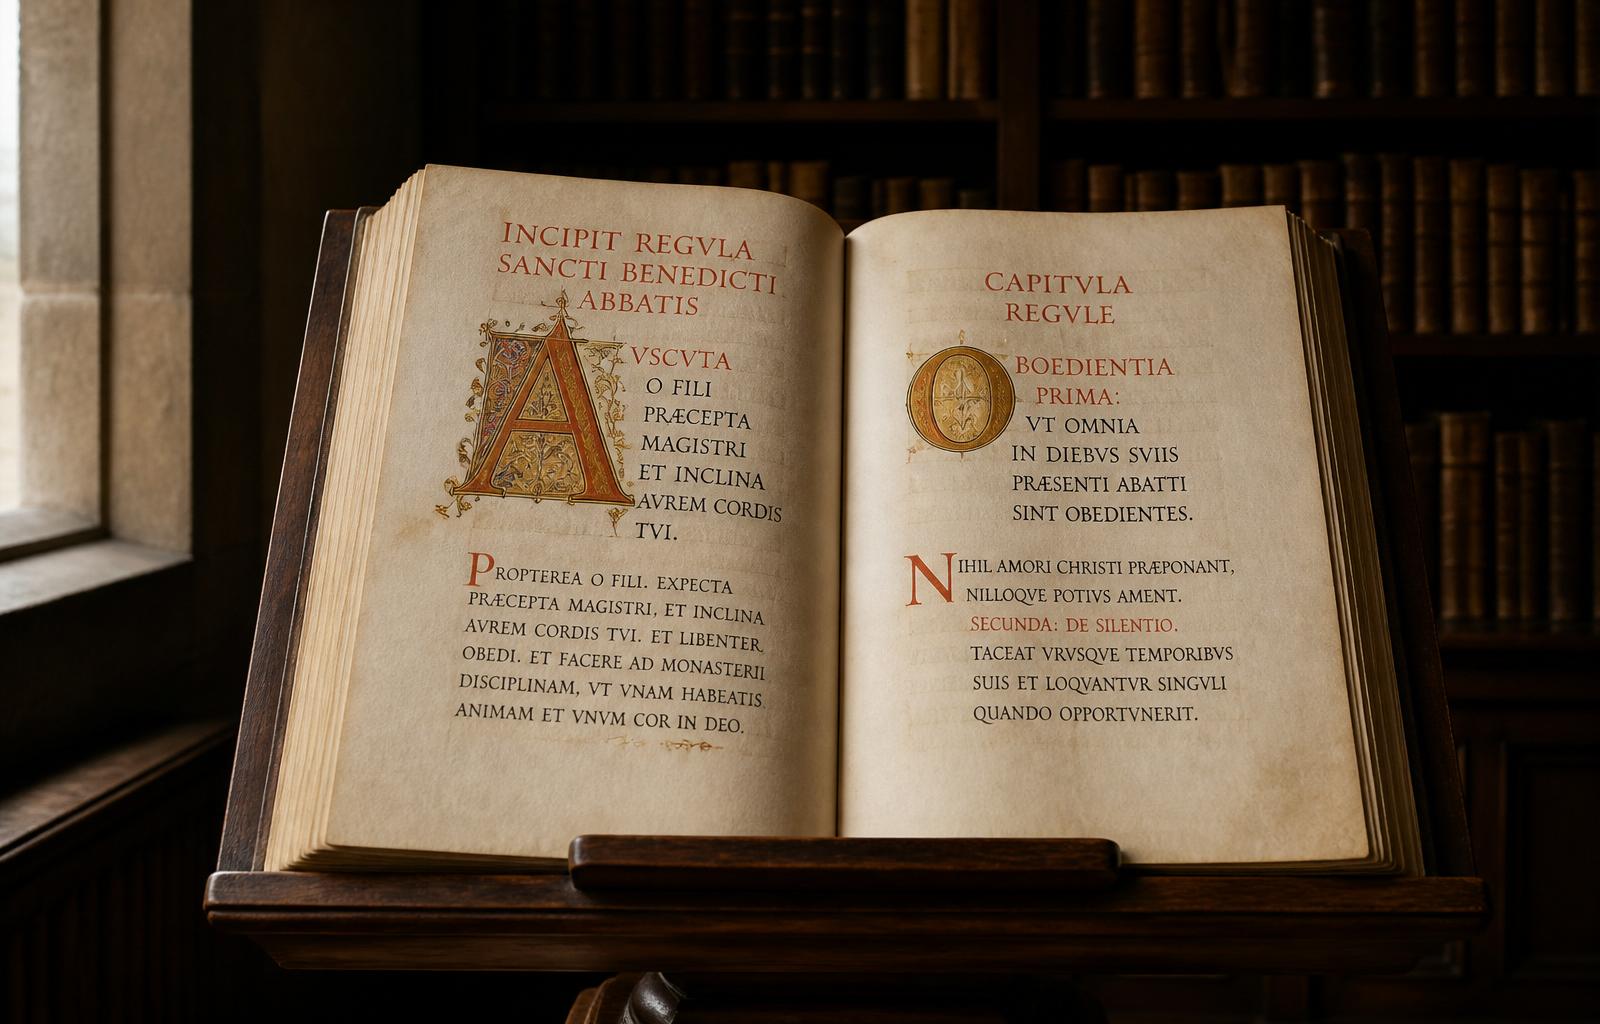 INCIPIT REGVLA
SANCTI BENEDICTI
ABBATIS
AVSCVTA
O FILI
PRÆCEPTA
MAGISTRI
ET INCLINA
AVREM CORDIS
TVI.
PROPTEREA O FILI. EXPECTA
PRÆCEPTA MAGISTRI, ET INCLINA
AVREM CORDIS TVI. ET LIBENTER
OBEDI. ET FACERE AD MONASTERII
DISCIPLINAM, VT VNAM HABEATIS
ANIMAM ET VNVM COR IN DEO.
CAPITVLA
REGVLE
OBOEDIENTIA
PRIMA:
VT OMNIA
IN DIEBVS SVIIS
PRÆSENTI ABATTI
SINT OBEDIENTES.
NIHIL AMORI CHRISTI PRÆPONANT,
NILLOQVE POTIVS AMENT.
SECUNDA: DE SILENTIO.
TACEAT VRVSQVE TEMPORIBVS
SUIS ET LOQVANTVR SINGVLI
QUANDO OPPORTVNERIT.